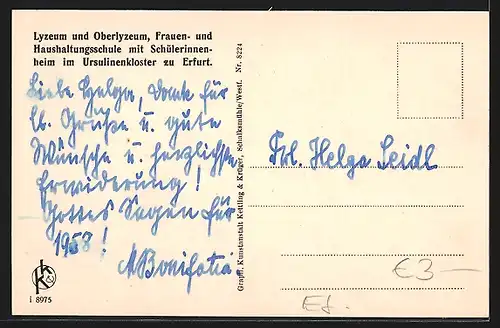 Lyzeum und Oberlyzeum, Frauen- und
Haushaltungsschule mit Schülerinnen-
heim im Ursulinenkloster zu Erfurt.
Liebe Helga, Dank für
lb. Grüße u. gute
Wünsche u. herzlichste
Erwiderung!
Gottes Segen für
1958!
M Bonifatia
Graph. Kunstanstalt Kettling & Krüger, Schalksmühle/Westf. Nr. 8224
Frl. Helga Seidl
€3—
Ef.
k&k
I 8975